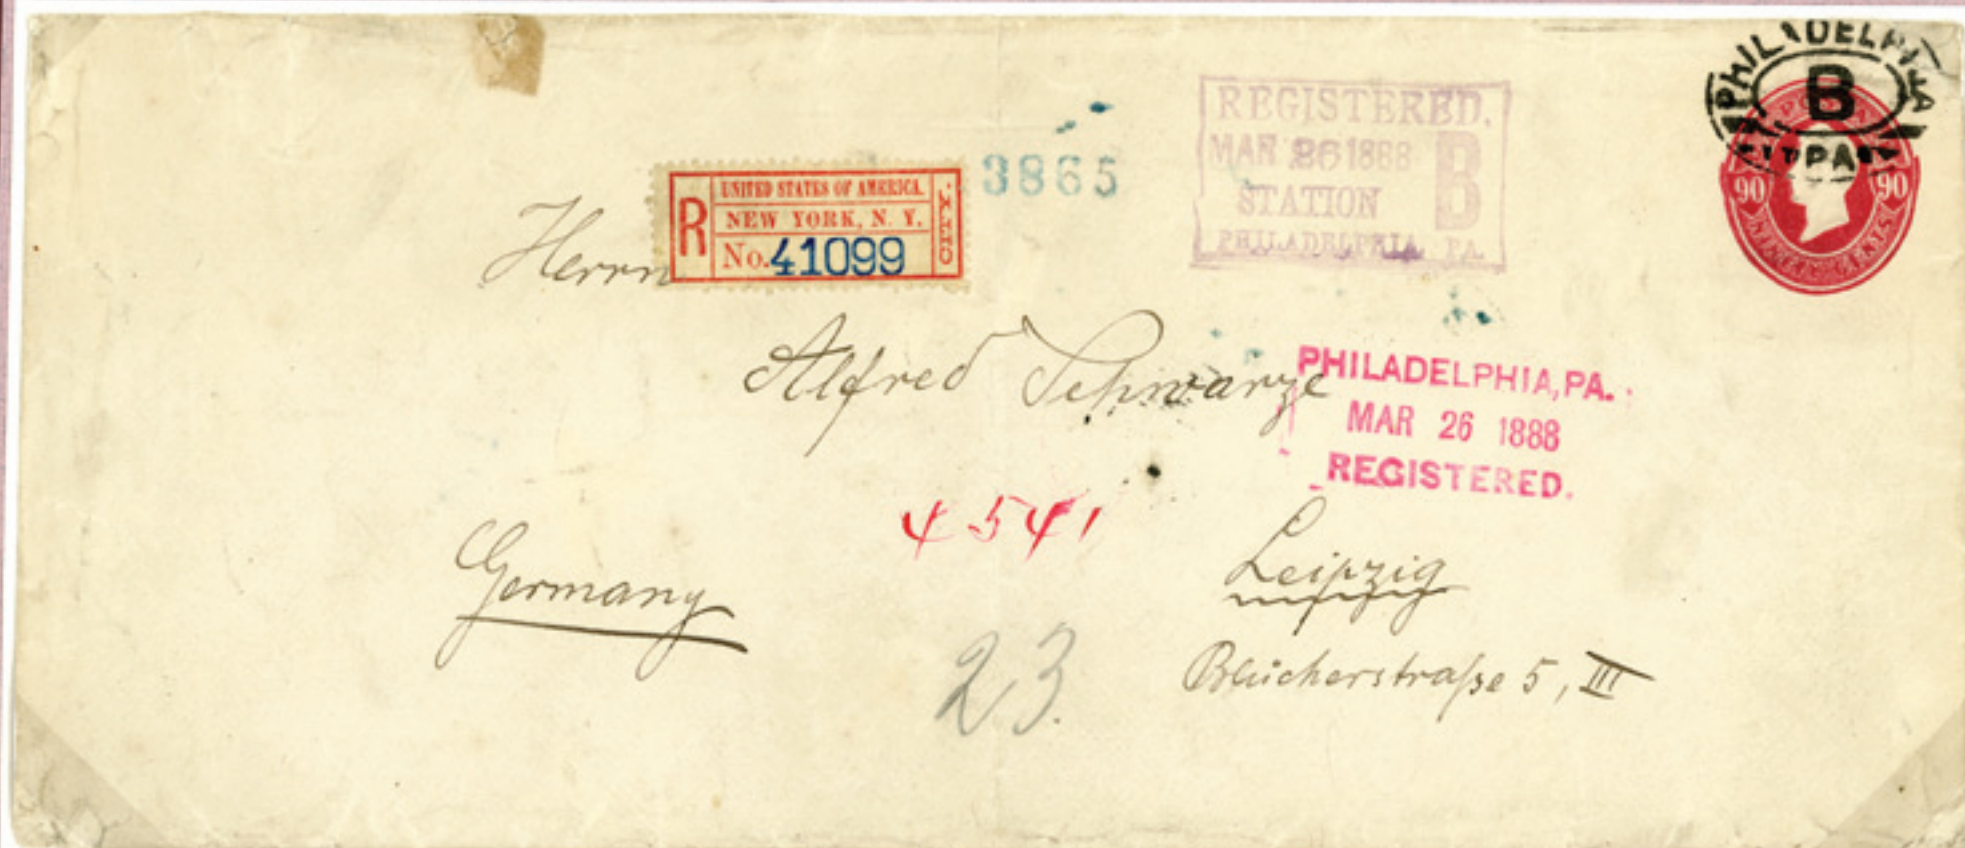 PHILADELPHIA
B
PA
POSTA
90 90
NINETY CENTS
REGISTERED.
MAR 26 1888
STATION B
PHILADELPHIA, PA.
3865
UNITED STATES OF AMERICA.
R
NEW YORK, N. Y.
No. 41099
Herrn
Alfred Schwarze
PHILADELPHIA, PA.
MAR 26 1888
REGISTERED.
4541
Germany
Leipzig
23.
Blücherstraße 5, III